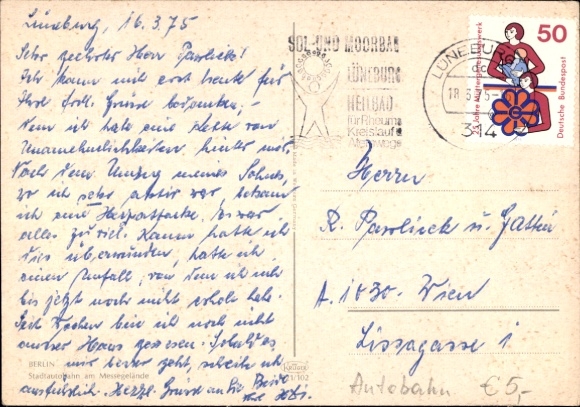 Lüneburg, 16.3.75
Sehr geehrter Herr Pavlicek!
Ich kann mich erst heute für
Ihre frdl. Grüße bedanken,
denn ich habe eine Kette von
Unannehmlichkeiten hinter mir.
Nach dem Umzug meines Sohnes,
wo ich sehr aktiv war, bekam
ich eine Herzattacke. Es war
alles zu viel. Kaum hatte ich
dies überwunden, hatte ich
einen Unfall, von dem ich mich
bis jetzt noch nicht erholt habe.
Seit Wochen bin ich noch nicht
ausser Haus gewesen. Sobald es
mir besser geht, schreibe ich
ausführlich. Herzl. Grüße an Sie Beide
BERLIN
Stadtautobahn am Messegelände
SOL- UND MOORBAD
LÜNEBURG
HEILBAD
für Rheuma
Kreislauf
Atemwege
LÜNEBURG
18.3.75
314
50
25 Jahre Müttergenesungswerk
Deutsche Bundespost
Herrn
R. Pavlicek u. Gattin
A. 1030. Wien
Lissagasse 1
Krüger
Autobahn € 5,-